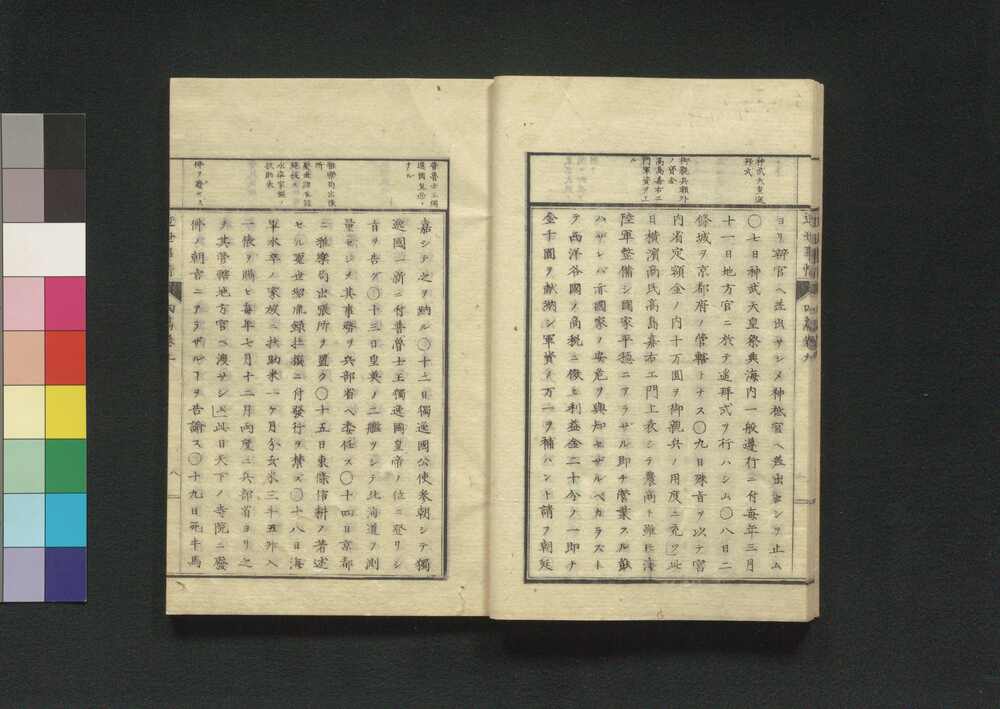 神武天皇遙
拜式
御親兵額外
ノ資金
高島嘉右エ
門軍資ヲ上
ル
ヨリ辨官ヘ差出サシメ神祗官ヘ差出スヿヲ止ム
〇七日神武天皇祭典海内一般遵行ニ付毎年三月
十一日地方官ニ於テ遙拜式ヲ行ハシム〇八日二
條城ヲ京都府ノ管轄トナス〇九日勅旨ヲ以テ宮
内省定額金ノ内十万圓ヲ御親兵ノ用度ニ充ツ」此
日横濱商氏高島嘉右エ門上表シテ農商ト雖ヒ海
陸軍整備シ國家平穏ニアラザル即チ營業スル能
ハザレバ斉國家ノ安危ヲ與知セザルベカラズト
テ西洋各國ノ商税ニ倣ヒ利益金二十分ノ一即チ
金千圓ヲ献納シ軍資ノ万一ヲ補ハント請フ朝廷
普魯士王獨
逸國皇帝ト
ナル
雅樂局出張
所
水卒家族ノ
扶助米
嘉シテ之ヲ納ル〇十二日獨逸國公使参朝シテ獨
逸國一新ニ付普魯士王獨逸國皇帝ノ位ニ登リシ
旨ヲ告グ〇十三日皇英ノ二艦ヲシテ北海道ヲ測
量セシメ其事務ヲ兵部省ヘ委任ス〇十四日京都
ニ雅樂局出張所ヲ置ク〇十五日東條信耕ノ著述
セル夏世紹胤録杜撰ニ付發行ヲ禁ズ〇十八日海
軍水卒ノ家族ニ扶助米一ケ月分玄米三斗五升入
一俵ヲ賜ヒ毎年七月十二月両度ニ兵部省ヨリ之
ヲ其管轄地方官ヘ渡サシム」此日天下ノ寺院ニ廢
佛ハ朝旨ニアラザル丁ヲ告諭ス〇十九日死牛馬